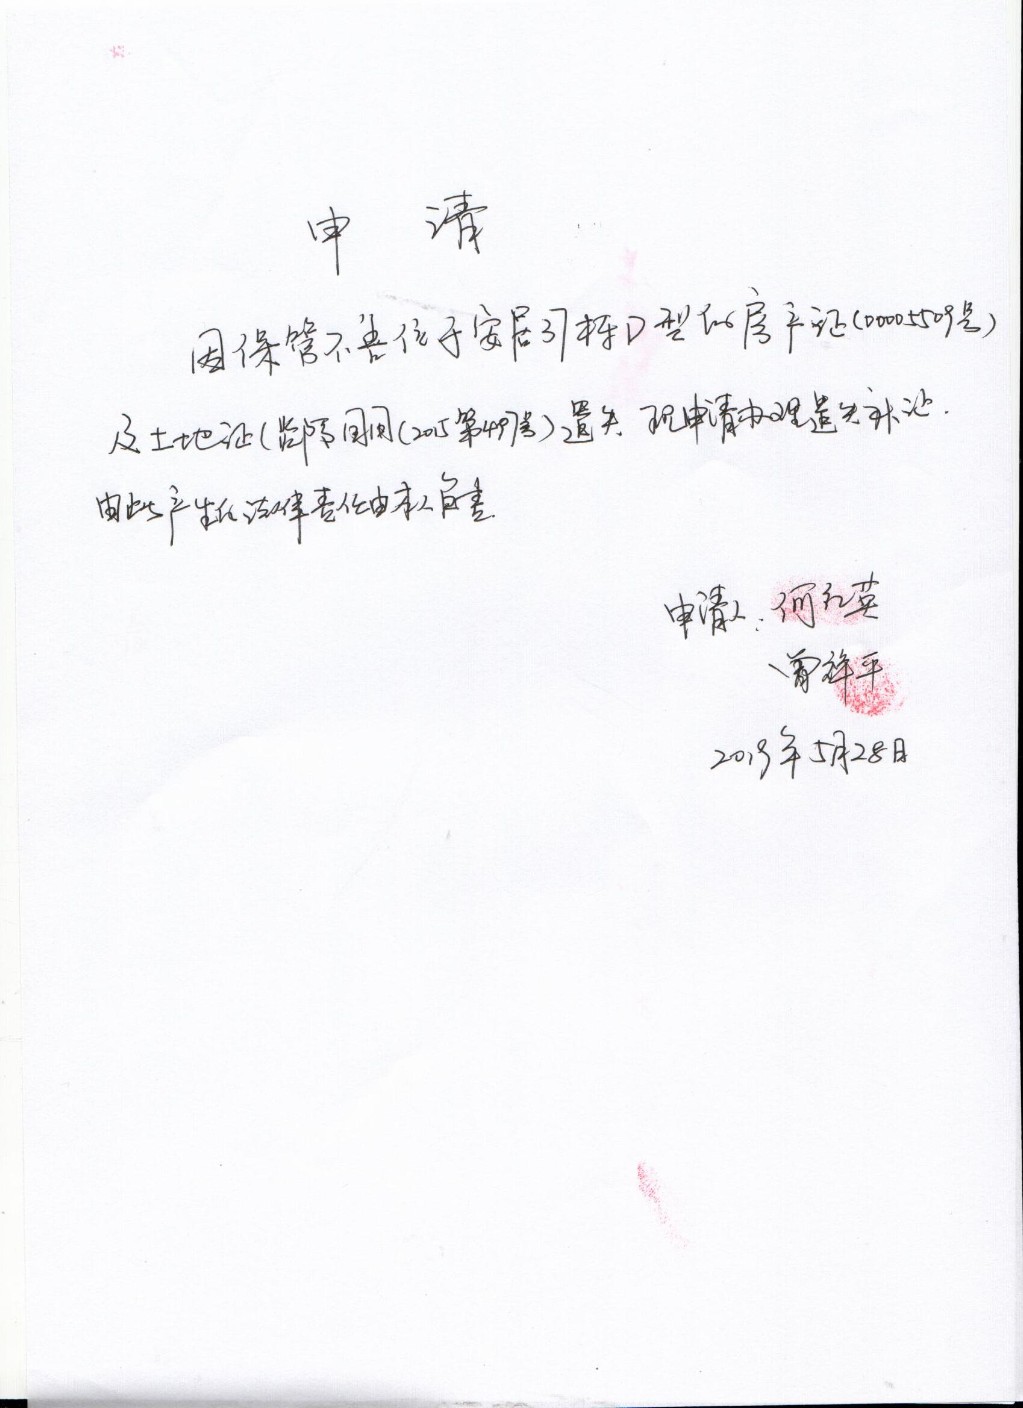 申 请
因保管不善位于安居引栋D型的房产证(00005509号)
及土地证( 国用(2015第499号)遗失 现申请办理遗失补证.
由此产生的法律责任由本人自责
申请人: 何红英
曾祥平
2019年5月28日